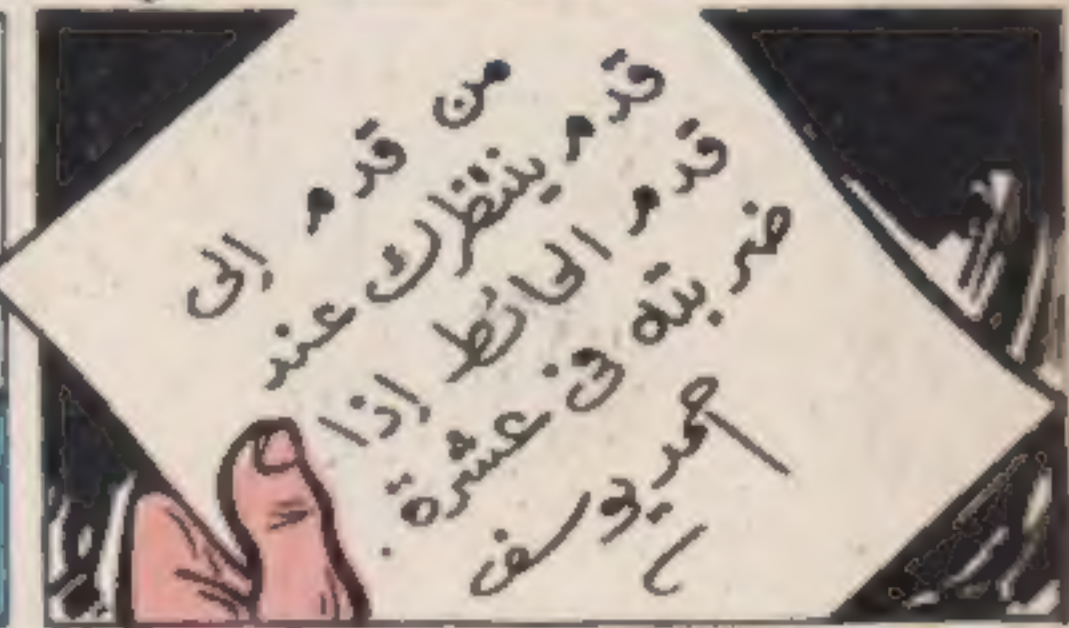 من قدم إلى
قدم ينتظرك عند
قدم الحائط إذا
ضربته فى عشرة.
احمد يوسف